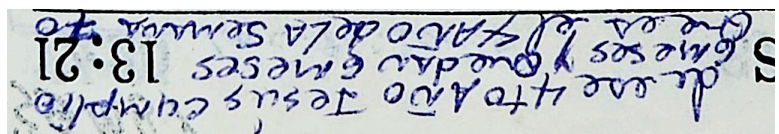 de ese 4to AÑO Jesus cumplio
6 meses y quedan 6 meses 13:21
que es el 7 AÑO de LA SemaNa 70
S